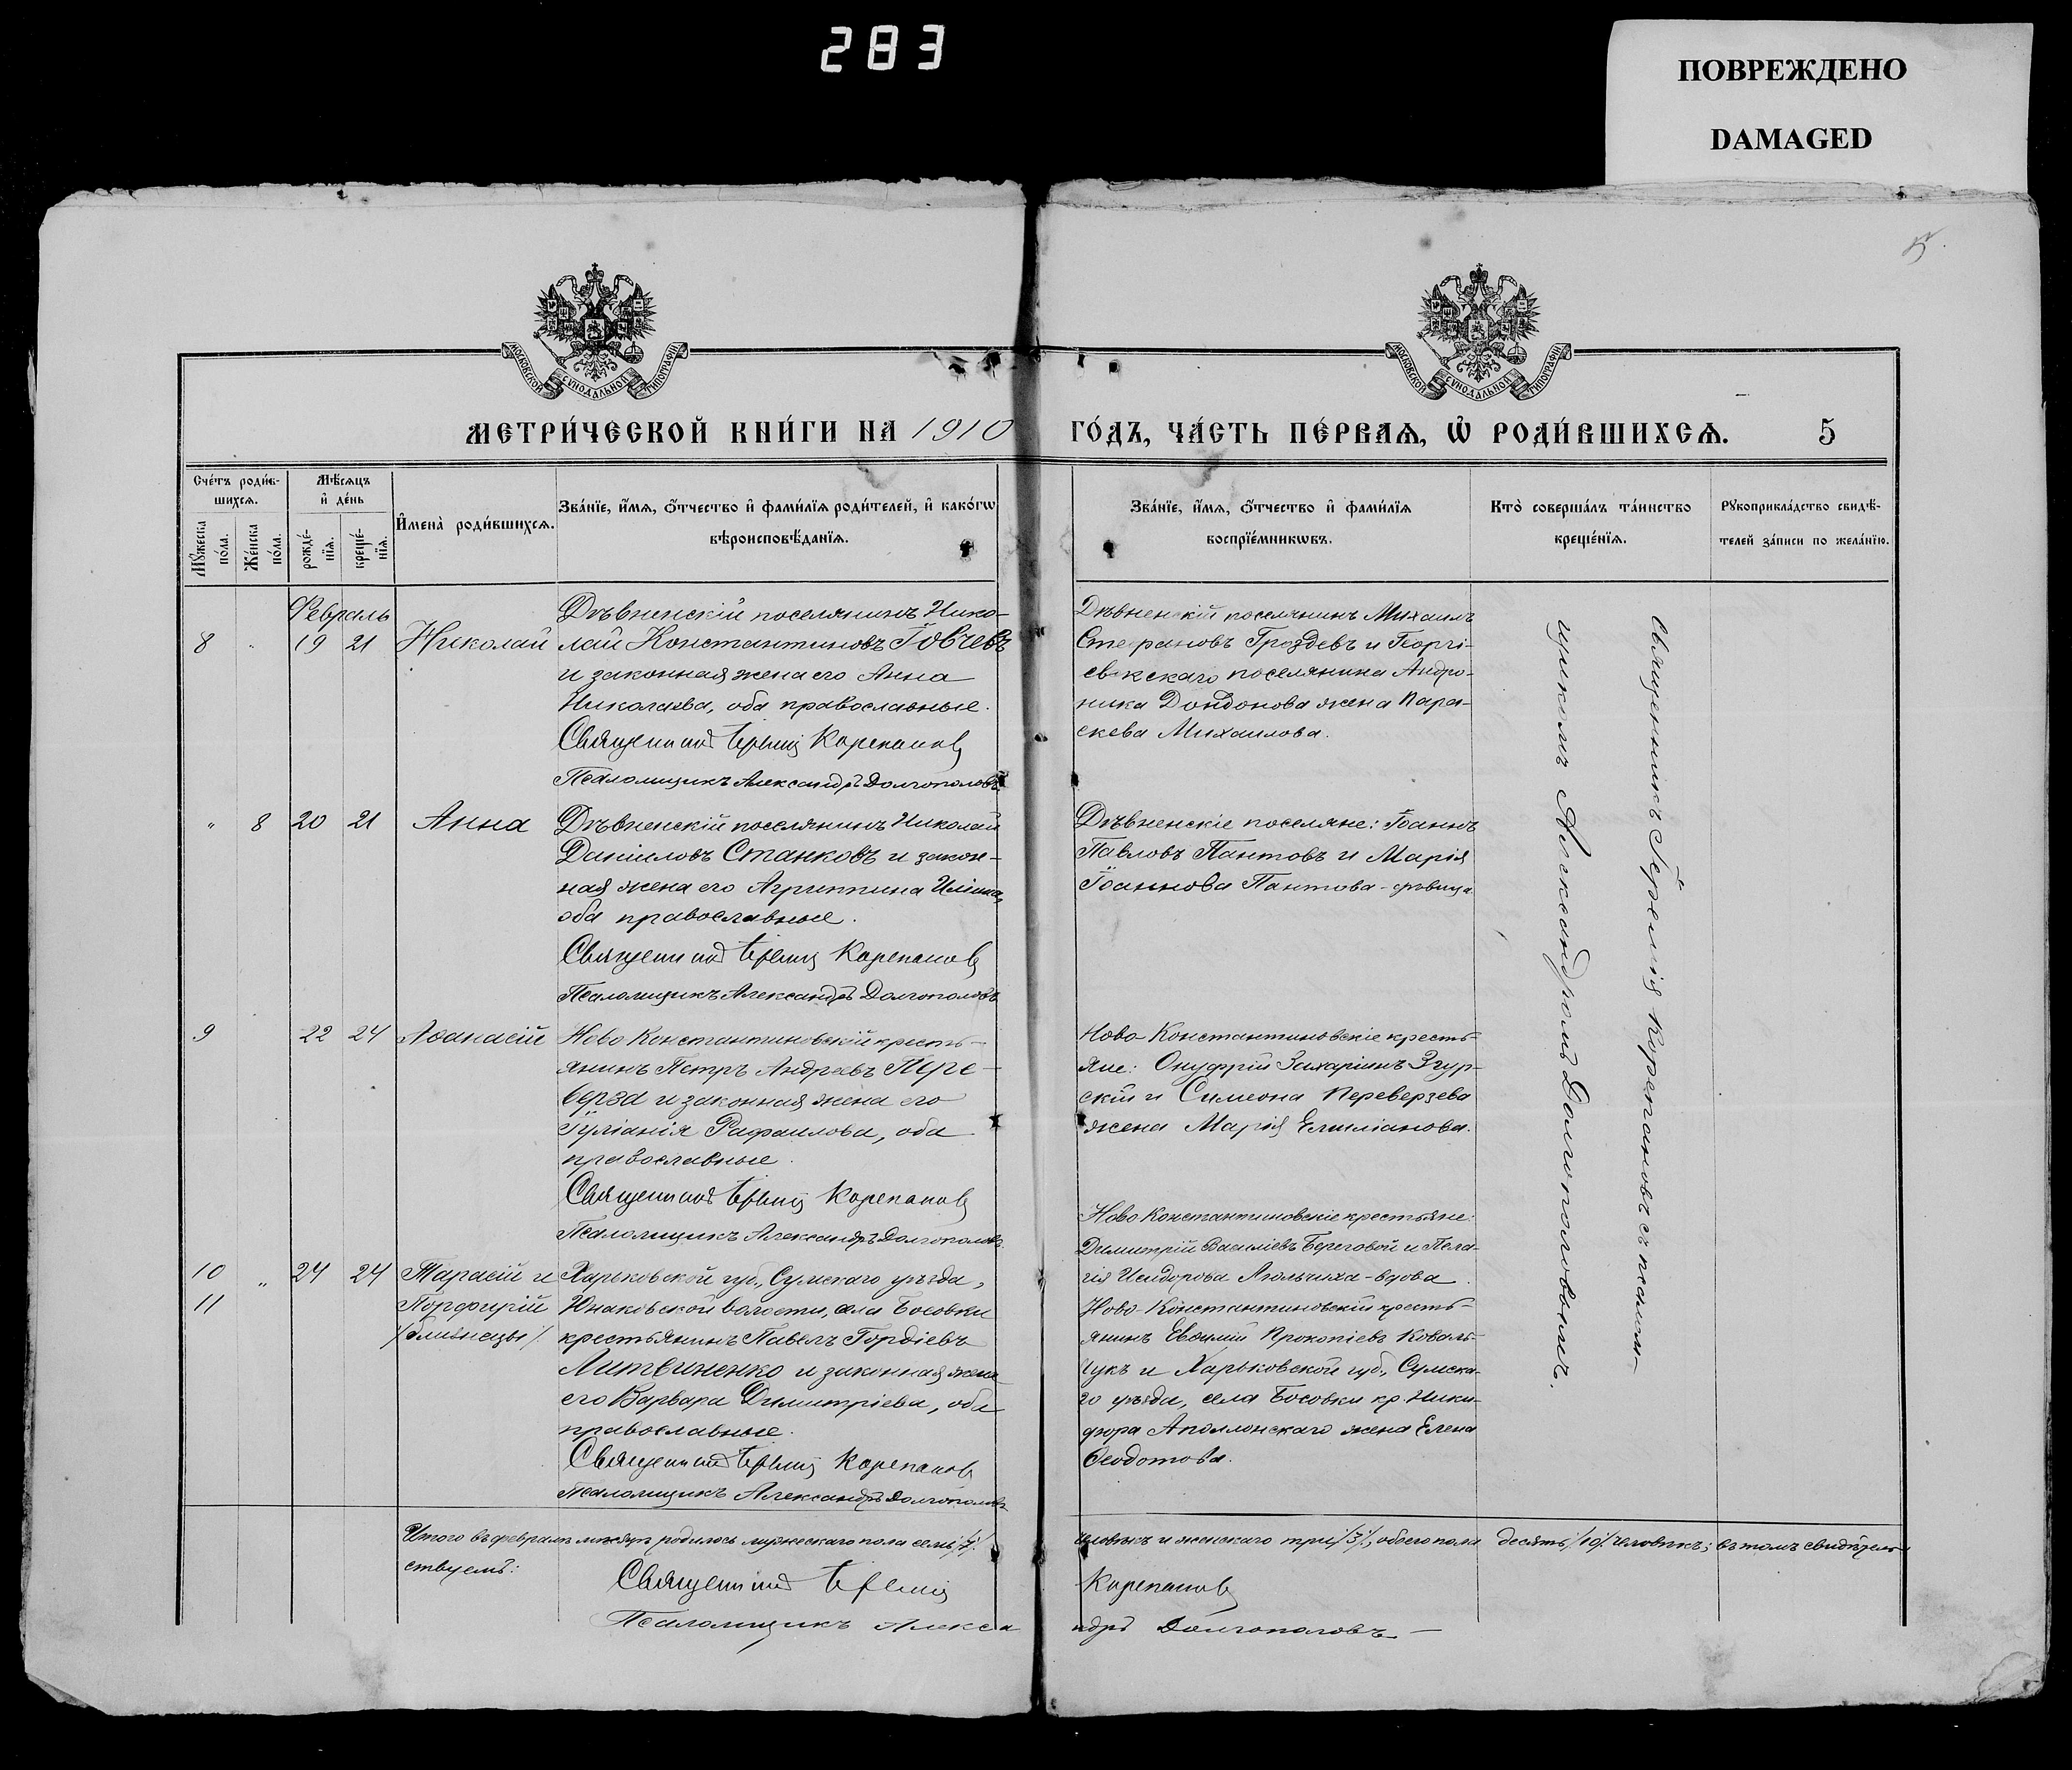 283
ПОВРЕЖДЕНО
DAMAGED
5
МОСКОВСКОЙ СѴНОДАЛЬНОЙ ТИПОГРАФІИ
МОСКОВСКОЙ СѴНОДАЛЬНОЙ ТИПОГРАФІИ
МЕТРИ́ЧЕСКОЙ КНИ́ГИ НА 1910 ГО́ДЪ, ЧА́СТЬ ПЕ́РВАѦ, Ѡ РОДИ́ВШИХСѦ. 5
Сче́тъ роди́в-
шихсѧ.
Мꙋжеска
по́ла.
Же́нска
по́ла.
Мѣ́сѧцъ
и де́нь
рожде́-
нїѧ.
креще́-
нїѧ.
Имена̀ роди́вшихсѧ.
Зва́нїе, и́мѧ, о́тчество и фами́лїѧ роди́телей, и како́гѡ
вѣроисповѣ́данїѧ.
Зва́нїе, и́мѧ, о́тчество и фами́лїѧ
воспрїе́мникѡвъ.
Кто̀ соверша́лъ та́инство
креще́нїѧ.
Рꙋкоприкла́дство свидѣ́-
телей за́писи по жела́нїю.
Февраль
8 " 19 21 Николай
Дѣвненскій поселянинъ Нико-
лай Константиновъ Говчевъ
и законная жена его Анна
Николаева, оба православные.
Священникъ Іеремія Корепановъ
Псаломщикъ Александръ Долгополовъ
Дѣвненскій поселянинъ Михаилъ
Стефановъ Гроздевъ и Георгі-
евскаго поселянина Андро-
ника Дондонова жена Пара-
скева Михаилова.
" 8 20 21 Анна
Дѣвненскій поселянинъ Николай
Даніиловъ Станковъ и закон-
ная жена его Агриппина Иліина,
оба православные.
Священникъ Іеремія Корепановъ
Псаломщикъ Александръ Долгополовъ
Дѣвненскіе поселяне: Іоаннъ
Павловъ Пантовъ и Марія
Іоаннова Пантова - дѣвица
9 22 24 Аѳанасій
Ново Константиновскій кресть-
янинъ Петръ Андреевъ Пере-
верза и законная жена его
Іуліанія Рафаилова, оба
православные.
Священникъ Іеремія Корепановъ
Псаломщикъ Александръ Долгополовъ
Ново-Константиновскіе кресть-
яне: Онуфрій Захаріинъ Згур-
скій и Симеона Переверзева
жена Марія Емиліанова.
10 " 24 24 Тарасій и
11 Порфирій
/близнецы/
Харьковской губ., Сумскаго уѣзда,
Юнаковской волости, села Босовки
крестьянинъ Павелъ Гордіевъ
Литвиненко и законная жена
его Варвара Димитріева, оба
православные.
Священникъ Іеремія Корепановъ
Псаломщикъ Александръ Долгополовъ
Ново Константиновскіе крестьяне:
Димитрій Василіевъ Береговой и Пела-
гія Исидорова Люльчиха - вдова.
Ново-Константиновскій кресть-
янинъ Евѳимій Прокопіевъ Коваль-
чукъ и Харьковской губ., Сумска-
го уѣзда, села Босовки кр. Ники-
фора Аполлонскаго жена Елена
Ѳеодотова.
Священникъ Іеремія Корепановъ съ псалом-
щикомъ Александромъ Долгополовымъ.
Итого въ февралѣ мѣсяцѣ родилось мужескаго пола семь /7/ человѣкъ и женскаго три /3/, обоего пола десять /10/ человѣкъ; въ томъ свидѣтель-
ствуемъ:
Священникъ Іеремія Корепановъ
Псаломщикъ Александръ Долгополовъ